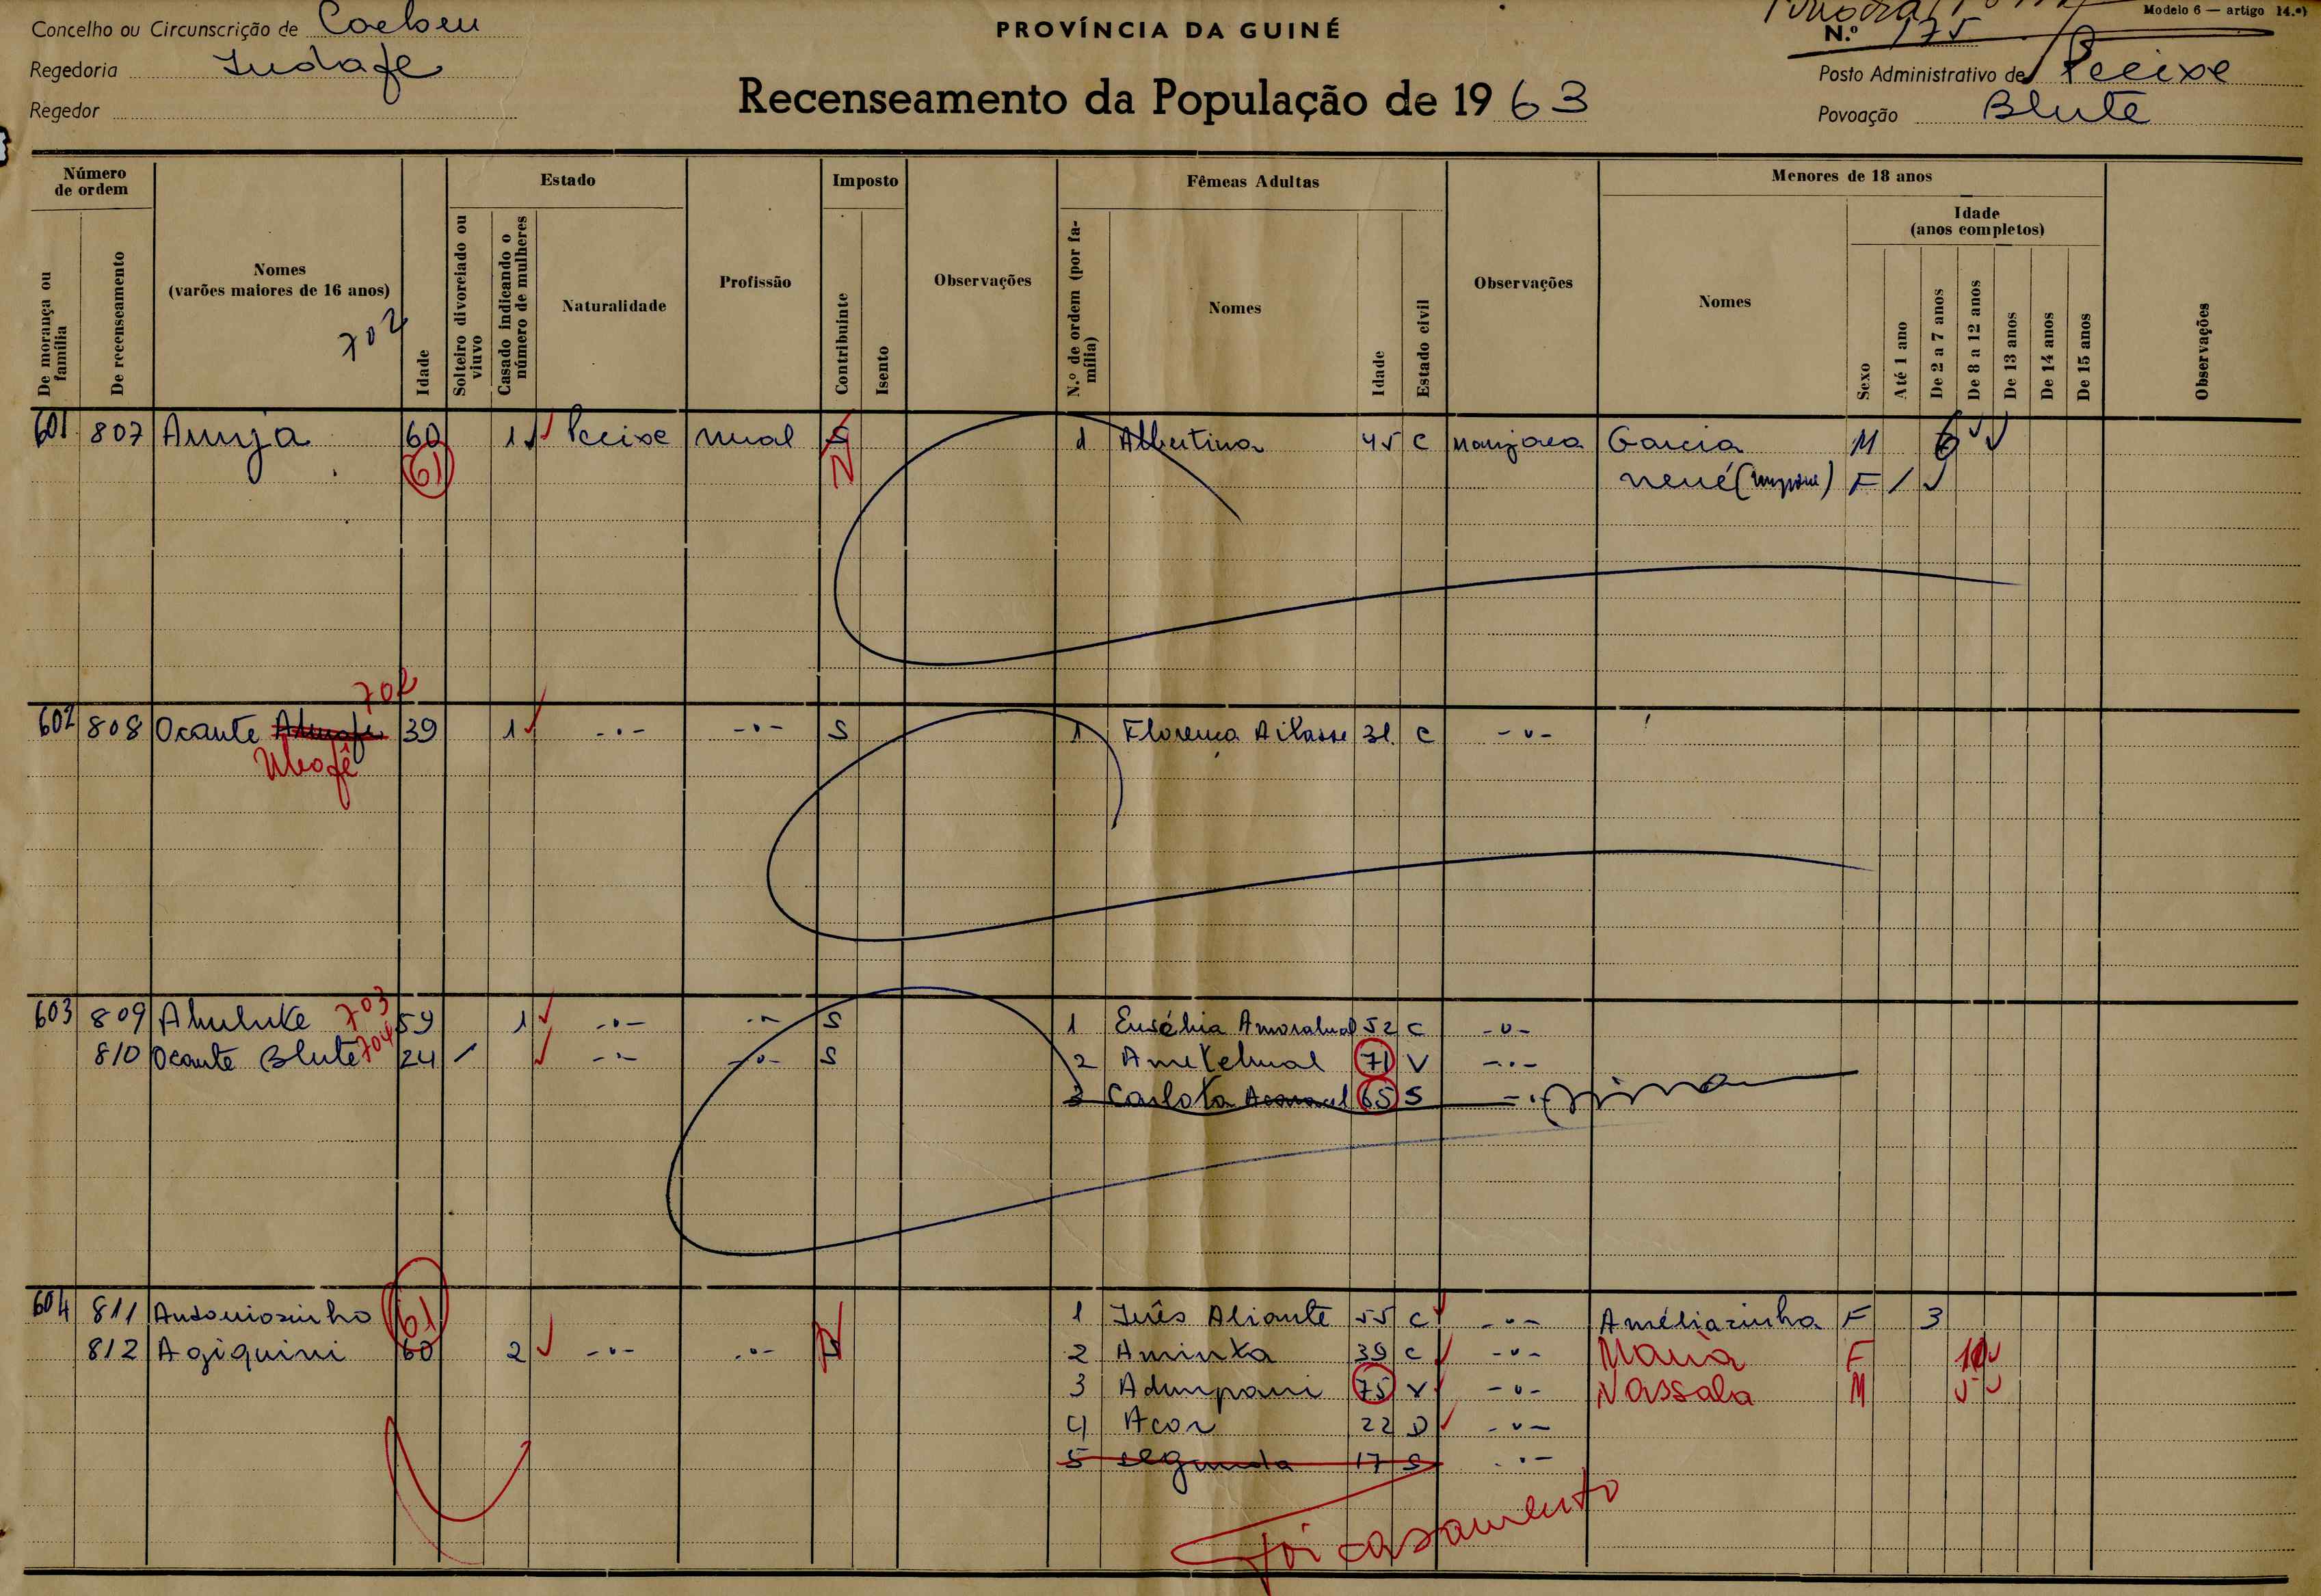 Concelho ou Circunscrição de
PROVÍNCIA DA GUINÉ
Modelo 6 — artigo 14.º)
N.º 175
Regedoria Indafe
Recenseamento da População de 1963
Posto Administrativo de Pecixe
Regedor
Povoação Blute
Número de ordem
De morança ou família
De recenseamento
Nomes
(varões maiores de 16 anos)
702
Idade
Estado
Solteiro divorciado ou viuvo
Casado indicando o número de mulheres
Naturalidade
Profissão
Imposto
Contribuinte
Isento
Observações
Fêmeas Adultas
N.º de ordem (por família)
Nomes
Idade
Estado civil
Observações
Menores de 18 anos
Nomes
Sexo
Idade
(anos completos)
Até 1 ano
De 2 a 7 anos
De 8 a 12 anos
De 13 anos
De 14 anos
De 15 anos
Observações
601 807 60 1 Pecixe rual 1 Albertina 45 C Garcia M 6
(61) N nené F
702
602 808 Ocante 39 1 -.- -.- S 1 31 C -.-
603 809 Ahulute 703 59 1 -.- -.- S 1 52 C -.-
810 Ocante Blute 704 24 -.- -.- S 2 71 V -.-
3 Carlota 65 S -.-
604 811 Antoniosinho 61 1 Inês Aliante 55 C -.- Améliazinha F 3
812 Agiquini 60 2 -.- -.- N 2 Aminta 39 C -.- Maria F
3 Adumpani 75 V -.- Nassala M
4 Acor 22 D -.-
5 segunda 17 S -.-
Foi casamento